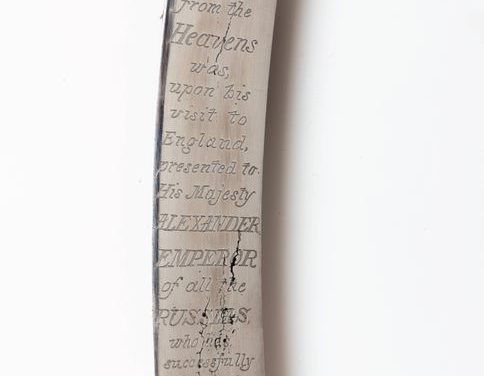 from the
Heavens
was,
upon his
visit to
England,
presented to
His Majesty
ALEXANDER
EMPEROR
of all the
RUSSIAS,
who has
successfully